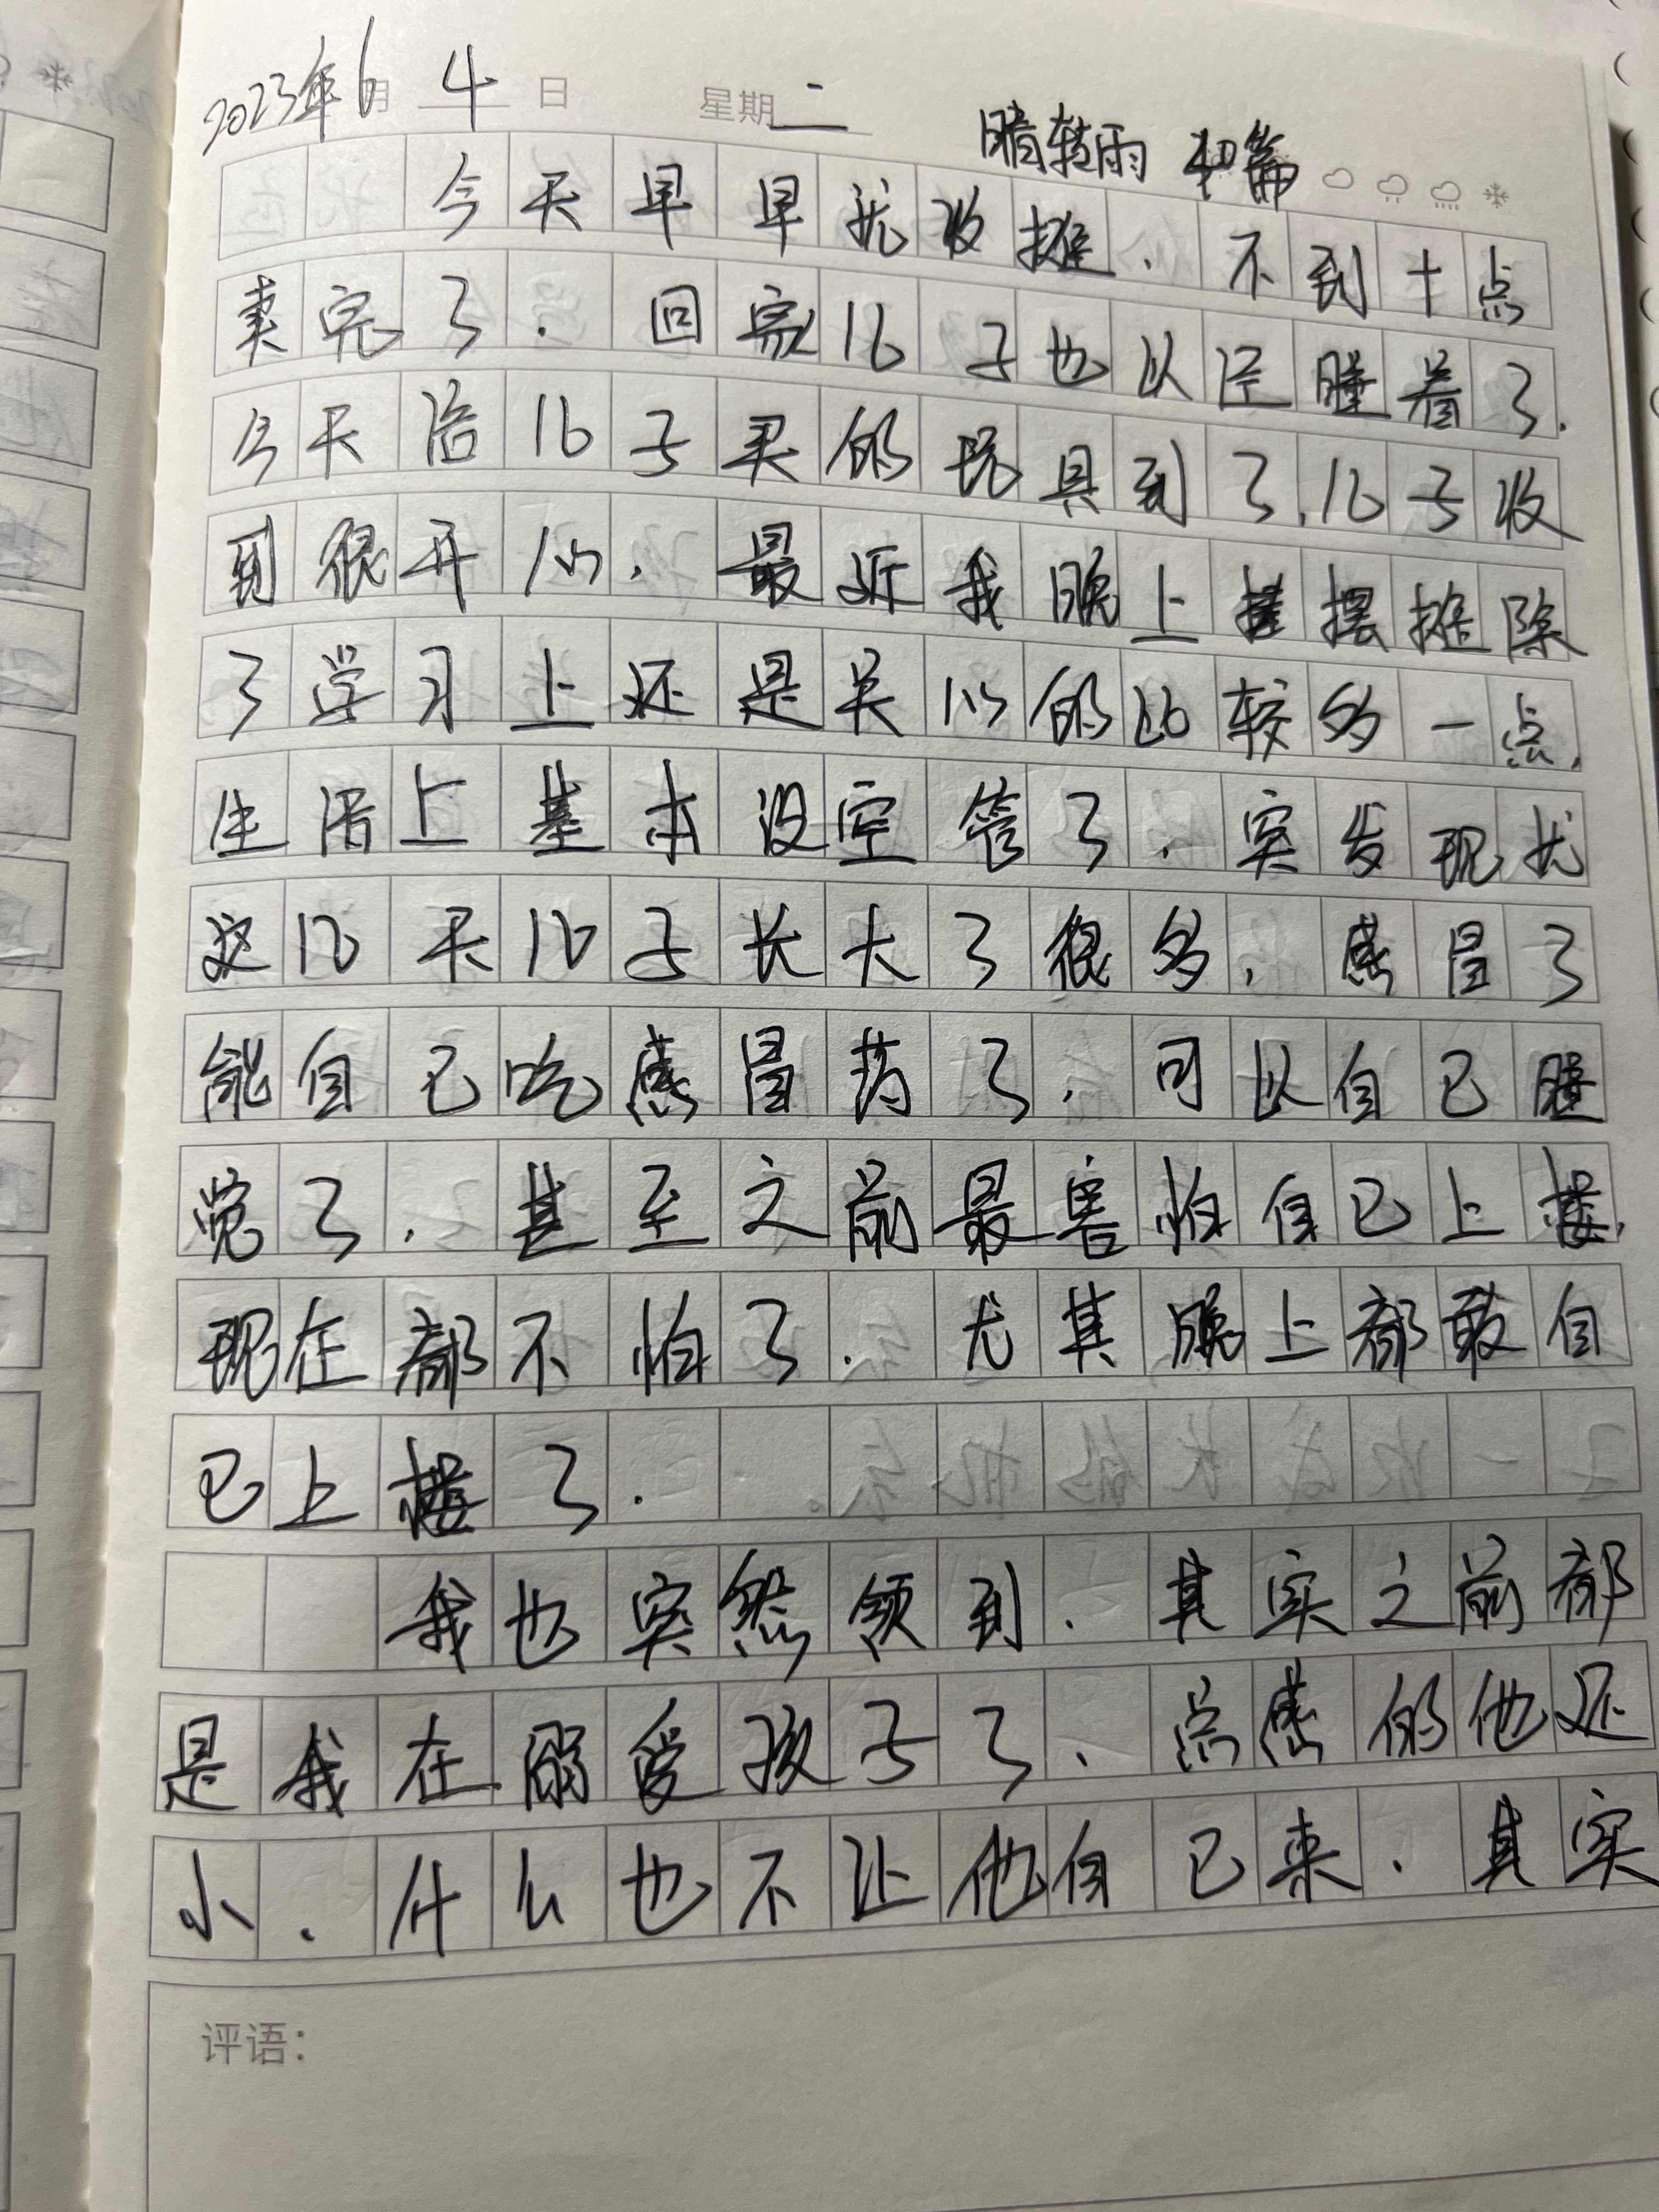 2023年6月 4 日 星期 二 晴转雨 40篇
今天早早就收摊、不到十点
卖完了. 回家儿子也以经睡着了.
今天给儿子买的玩具到了,儿子收
到很开心. 最近我晚上摆摊除
了学习上还是关心的比较多一点,
生活上基本没空管了. 突发现就
这几天儿子长大了很多, 感冒了
能自己吃感冒药了. 可以自己睡
觉了. 甚至之前最害怕自己上楼,
现在都不怕了. 尤其晚上都敢自
己上楼了.
我也突然领到. 其实之前都
是我在溺爱孩子了、总感的他还
小. 什么也不让他自己来. 其实
评语: